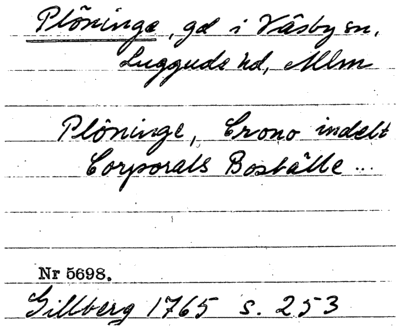 Plöninge, gd i Väsby sn,
Luggude hd, Mlm
Plöninge, Crono indelt
Corporals Boställe ...
Nr 5698.
Gillberg 1765 s. 253